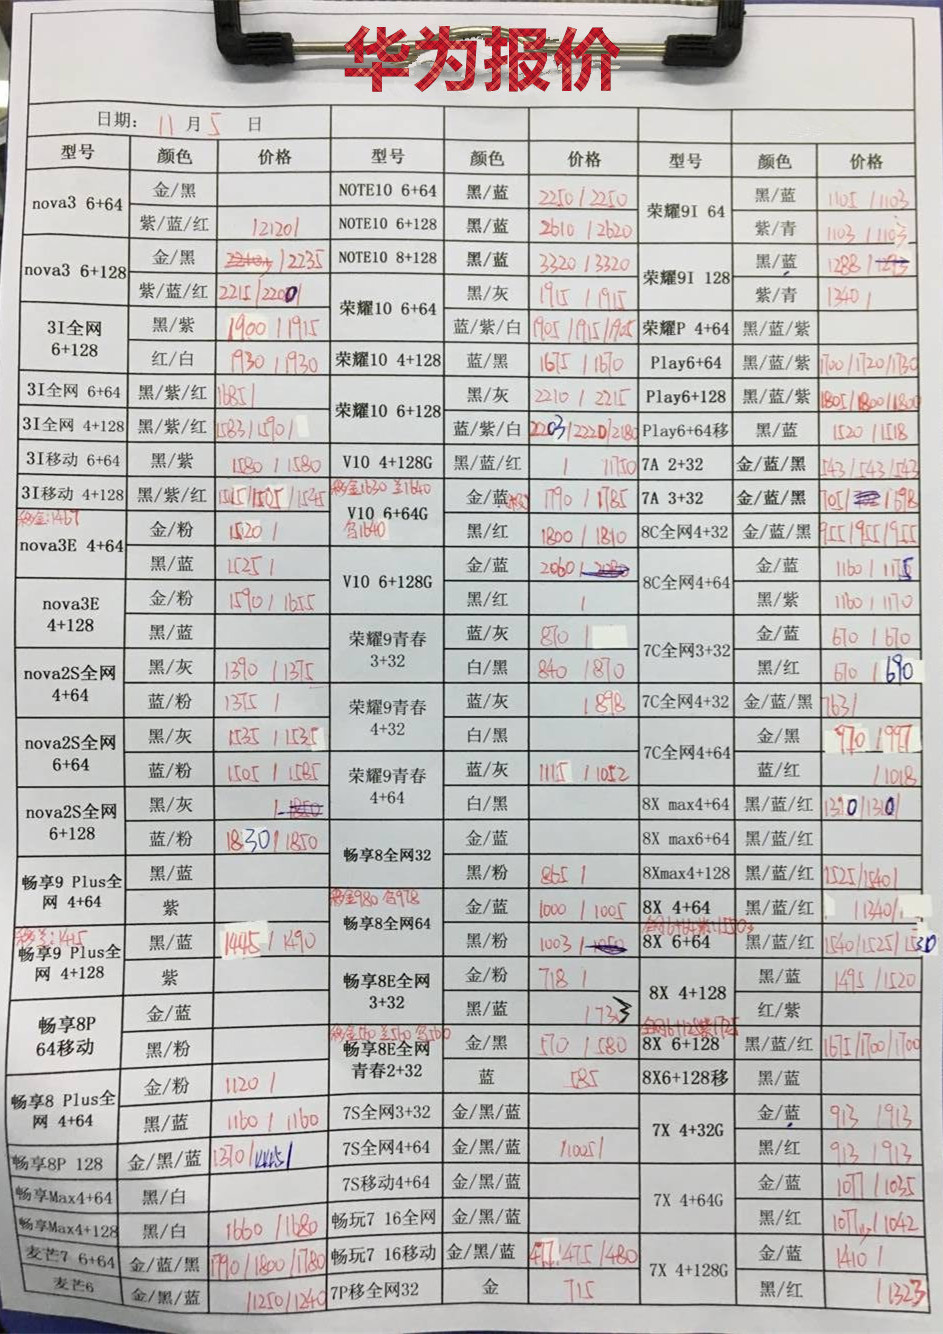 华为报价
日期： 11 月 5 日
型号 颜色 价格 型号 颜色 价格 型号 颜色 价格
nova3 6+64 金/黑 NOTE10 6+64 黑/蓝 2250/2250 荣耀9I 64 黑/蓝 1105/1103
紫/蓝/红 NOTE10 6+128 黑/蓝 2610/2620 紫/青 1103/1103
nova3 6+128 金/黑 /2235 NOTE10 8+128 黑/蓝 3320/3320 荣耀9I 128 黑/蓝 1288/
紫/蓝/红 2215/2200 荣耀10 6+64 黑/灰 1915/1915 紫/青 1340/
3I全网 6+128 黑/紫 1900/1915 蓝/紫/白 1905/1915/1905 荣耀P 4+64 黑/蓝/紫
红/白 1930/1930 荣耀10 4+128 蓝/黑 1675/1670 Play6+64 黑/蓝/紫 1700/1720/1730
3I全网 6+64 黑/紫/红 1685/ 荣耀10 6+128 黑/灰 2210/2215 Play6+128 黑/蓝/紫 1805/1800/1800
3I全网 4+128 黑/紫/红 1583/1590/ 蓝/紫/白 2203/2220/2180 Play6+64移 黑/蓝 1520/1518
3I移动 6+64 黑/紫 1580/1580 V10 4+128G 黑/蓝/红 /1750 7A 2+32 金/蓝/黑 543/543/543
3I移动 4+128 黑/紫/红 /1545 V10 6+64G 金/蓝 1790/1785 7A 3+32 金/蓝/黑 705/ /698
移金:1467
nova3E 4+64 金/粉 1520/ 黑/红 1800/1810 8C全网4+32 金/蓝/黑 955/955/955
黑/蓝 1525/ V10 6+128G 金/蓝 2060/ 8C全网4+64 金/蓝 1160/1175
nova3E 4+128 金/粉 1590/1655 黑/红 / 黑/紫 1160/1170
黑/蓝 荣耀9青春 3+32 蓝/灰 870/ 7C全网3+32 金/蓝 670/670
nova2S全网 4+64 黑/灰 1390/1375 白/黑 840/870 黑/红 670/690
蓝/粉 1375/ 荣耀9青春 4+32 蓝/灰 /898 7C全网4+32 金/蓝/黑 763/
nova2S全网 6+64 黑/灰 1535/1535 白/黑 7C全网4+64 金/黑 970/997
蓝/粉 1505/1585 荣耀9青春 4+64 蓝/灰 1115/1052 蓝/红 /1018
nova2S全网 6+128 黑/灰 白/黑 8X max4+64 黑/蓝/红 1310/1310/
蓝/粉 1830/1850 畅享8全网32 金/蓝 8X max6+64 黑/蓝/红
畅享9 Plus全网 4+64 黑/蓝 黑/粉 865/ 8Xmax4+128 黑/蓝/红 1525/1540/
紫 移金980 畅享8全网64 金/蓝 1000/1005 8X 4+64 黑/蓝/红 /1340/
畅享9 Plus全网 4+128 黑/蓝 1445/1490 黑/粉 1003/ 8X 6+64 黑/蓝/红 1540/1525/1530
紫 畅享8E全网 3+32 金/粉 718/ 8X 4+128 黑/蓝 1495/1520
畅享8P 64移动 金/蓝 黑/蓝 /733 红/紫
黑/粉 畅享8E全网 青春2+32 金/黑 570/580 8X 6+128 黑/蓝/红 1675/1700/1700
畅享8 Plus全网 4+64 金/粉 1120/ 蓝 585 8X6+128移 黑/蓝
黑/蓝 1160/1160 7S全网3+32 金/黑/蓝 7X 4+32G 金/蓝 913/913
畅享8P 128 金/黑/蓝 1370/1445/ 7S全网4+64 金/黑/蓝 /1025/ 黑/红 913/913
畅享Max4+64 黑/白 7S移动4+64 金/黑/蓝 7X 4+64G 金/蓝 1077/1035
畅享Max4+128 黑/白 1660/1680 畅玩7 16全网 金/黑/蓝 黑/红 /1042
麦芒7 6+64 金/蓝/黑 1790/1800/1780 畅玩7 16移动 金/黑/蓝 /475/480 7X 4+128G 金/蓝 1410/
麦芒6 金/黑/蓝 /1250/1240 7P移全网32 金 715 黑/红 /1323